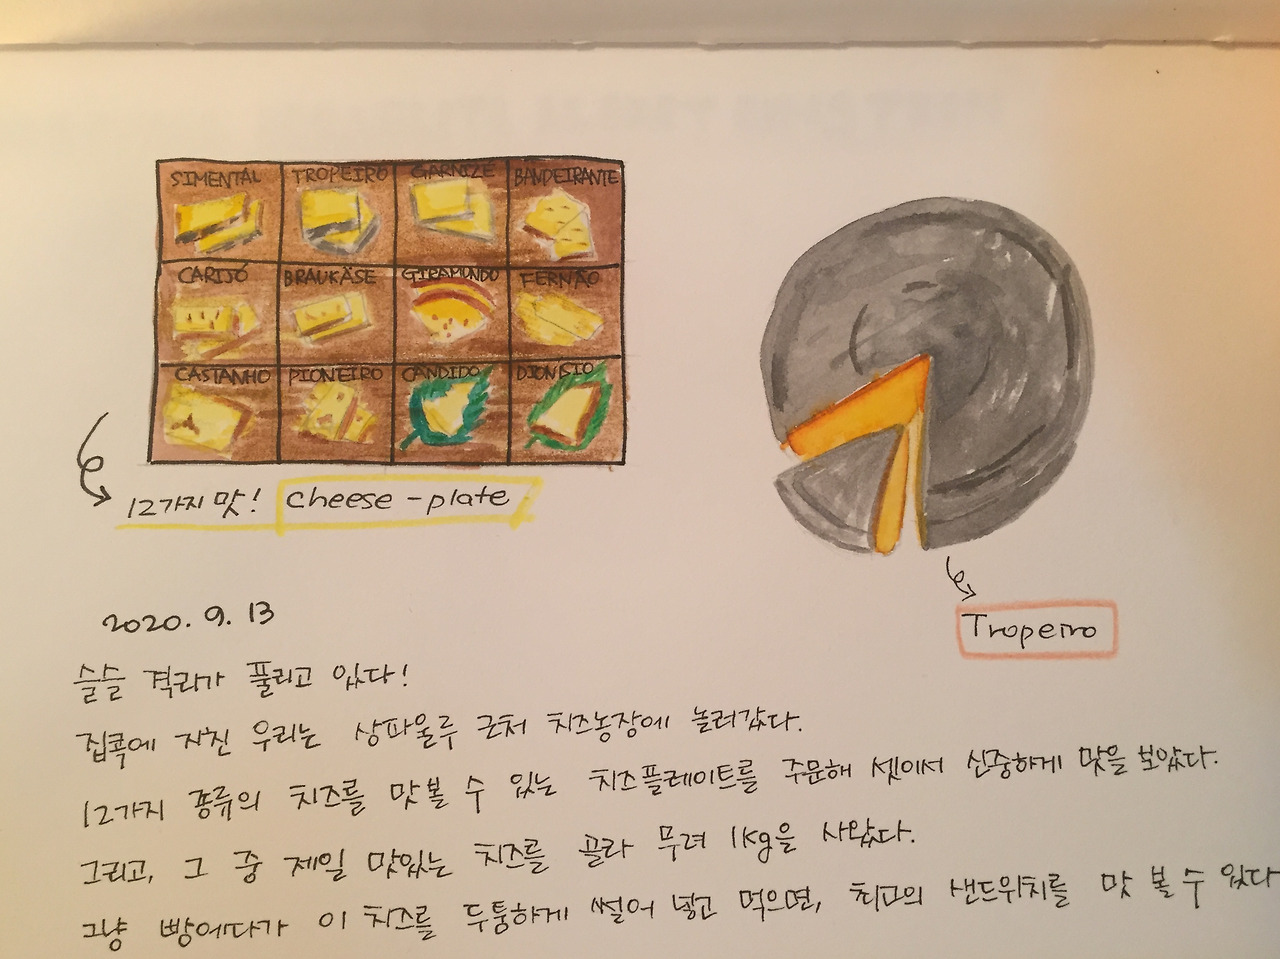 SIMENTAL TROPEIRO GARNIZÉ BANDEIRANTE
CARIJÓ BRAUKÄSE GIRAMUNDO FERNÃO
CASTANHO PIONEIRO CANDIDO DIONÍSIO
12가지 맛! cheese-plate
Tropeiro
2020. 9. 13
슬슬 격리가 풀리고 있다!
집콕에 지친 우리는 상파울루 근처 치즈농장에 놀러갔다.
12가지 종류의 치즈를 맛볼 수 있는 치즈플레이트를 주문해 셋이서 신중하게 맛을 보았다.
그리고, 그 중 제일 맛있는 치즈를 골라 무려 1kg을 사왔다.
그냥 빵에다가 이 치즈를 두툼하게 썰어 넣고 먹으면, 최고의 샌드위치를 맛 볼 수 있다